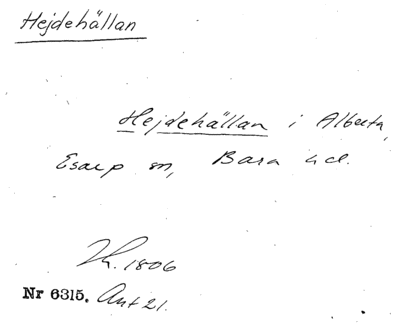 Hejdehällan
Hejdehällan i Alberta,
Esarp sn, Bara hd.
1806
Nr 6315. Ant 21.